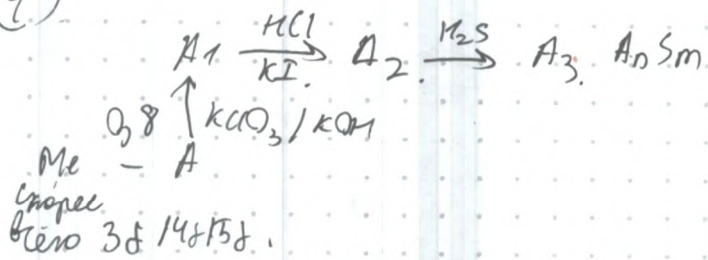 A1 HCl/KI. → A2. H2S → A3. AnSm
0,8 ↑ KClO3/KOH
Me – A
скорее
всего 3d/4d/5d.